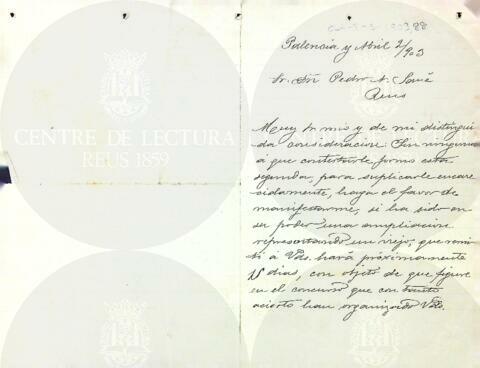 Palencia y Abril 2/903
Sr. Dn Pedro A. Savé
Reus
Muy Sr mio y de mi distingui
da consideracion: Sin ninguna
á que contestarle formo esta
segunda, para suplicarle encare
cidamente, haga el favor de
manifestarme, si ha sido en
su poder una ampliacion
representando un viejo, que remi
tí á Vds. hará próximamente
15 dias, con objeto de que figure
en el concurso que con tanto
acierto han organizado Vds.
CENTRE DE LECTURA
REUS 1859